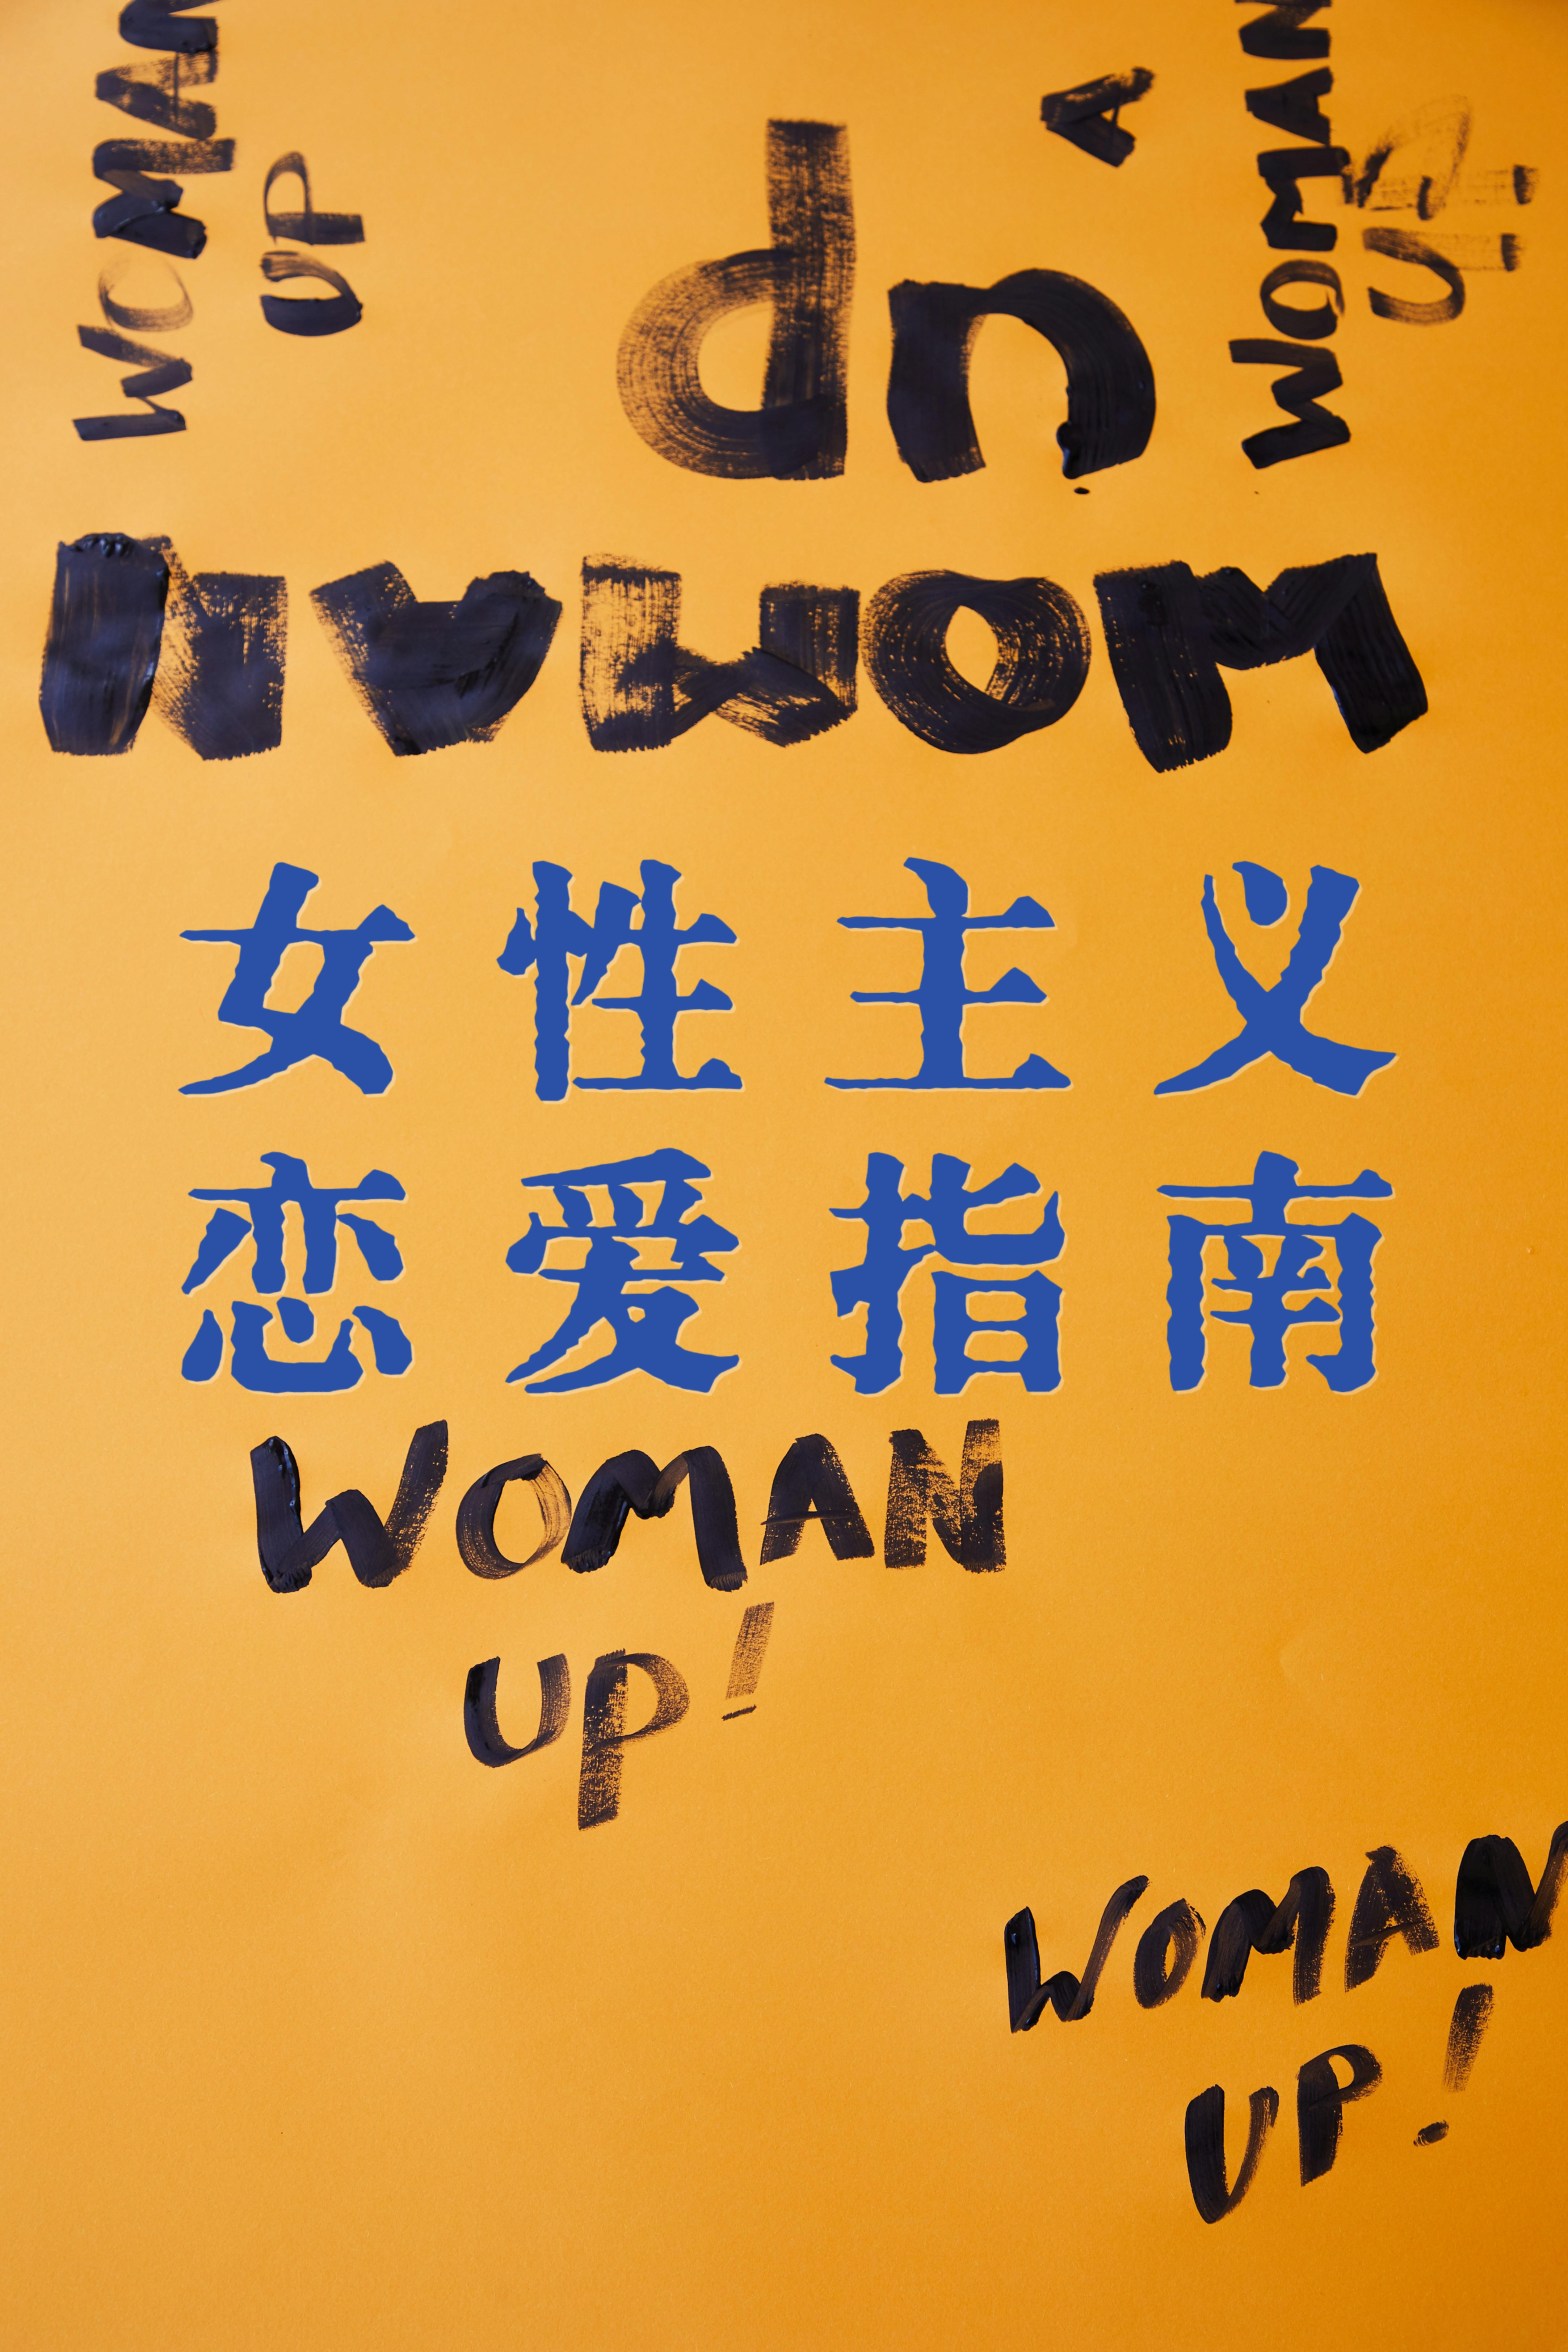 WOMAN
UP
A
WOMAN
UP!
UP
WOMAN
女性主义
恋爱指南
WOMAN
UP!
WOMAN
UP!